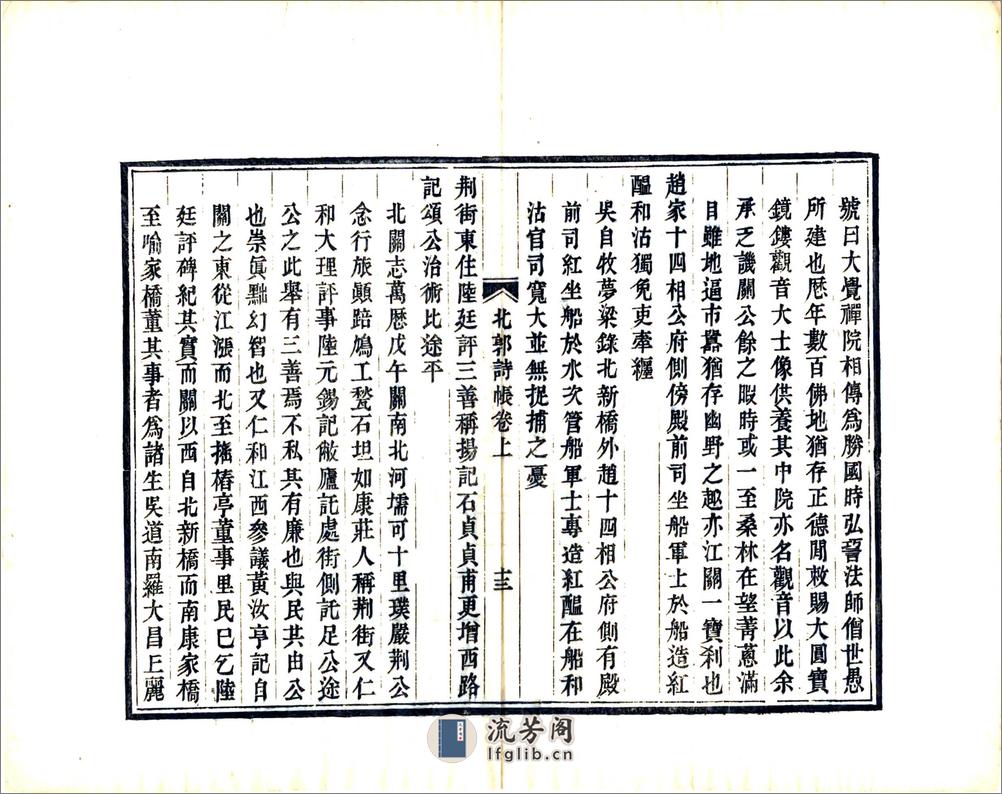 號曰大覺禪院相傳爲勝國時弘誓法師僧世愚
所建也歷年數百佛地猶存正德間敕賜大圓寶
鏡鏤觀音大士像供養其中院亦名觀音以此余
承乏譏關公餘之暇時或一至桑林在望菁蔥滿
目雖地逼市囂猶存幽野之趣亦江關一寶刹也
趙家十四相公府側傍殿前司坐船軍士於船造紅
醞和沽獨免吏牽纏
吳自牧夢粱錄北新橋外趙十四相公府側有殿
前司紅坐船於水次管船軍士專造紅醞在船和
沽官司寬大並無捉捕之憂
北郭詩帳卷上
十三
荆街東住陸廷評三善稱揚記石貞貞甫更增西路
記頌公治術比途平
北關志萬歷戊午關南北河壖可十里璞嚴荆公
念行旅顚踣鳩工甃石坦如康莊人稱荆街又仁
和大理評事陸元錫記敝廬託處街側託足公途
公之此舉有三善焉不私其有廉也與民其由公
也崇眞黜幻智也又仁和江西參議黃汝亨記自
關之東從江漲而北至搖樁亭董事里民已乞陸
廷評碑紀其實而關以西自北新橋而南康家橋
至喻家橋董其事者爲諸生吳道南羅大昌王麗
流芳阁
lfglib.cn